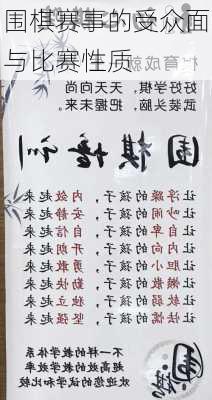 围棋赛事的受众面
与比赛性质
好好学棋，天天向尚
武装头脑，把握未来
围棋
让浮躁的孩子，内敛起来
让吵闹的孩子，安静起来
让自卑的孩子，自信起来
让内向的孩子，开朗起来
让胆小的孩子，勇敢起来
让懒散的孩子，勤快起来
让软弱的孩子，独立起来
让怯懦的孩子，坚强起来
不一样的教学体系
更高效的教学效率
欢迎您的试学和比较
围棋